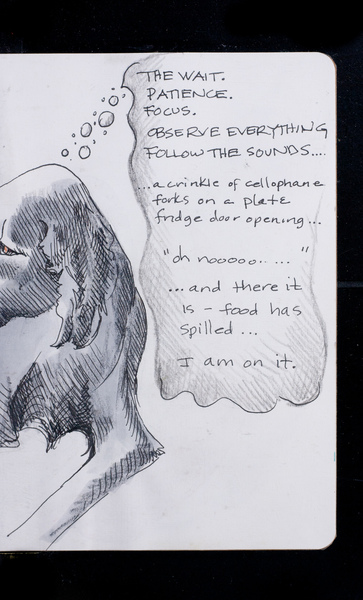 THE WAIT.
PATIENCE.
FOCUS.
OBSERVE EVERYTHING
FOLLOW THE SOUNDS....
...a crinkle of cellophane
forks on a plate
fridge door opening...
"oh nooooo.. ... "
...and there it
is - food has
spilled ...
I am on it.